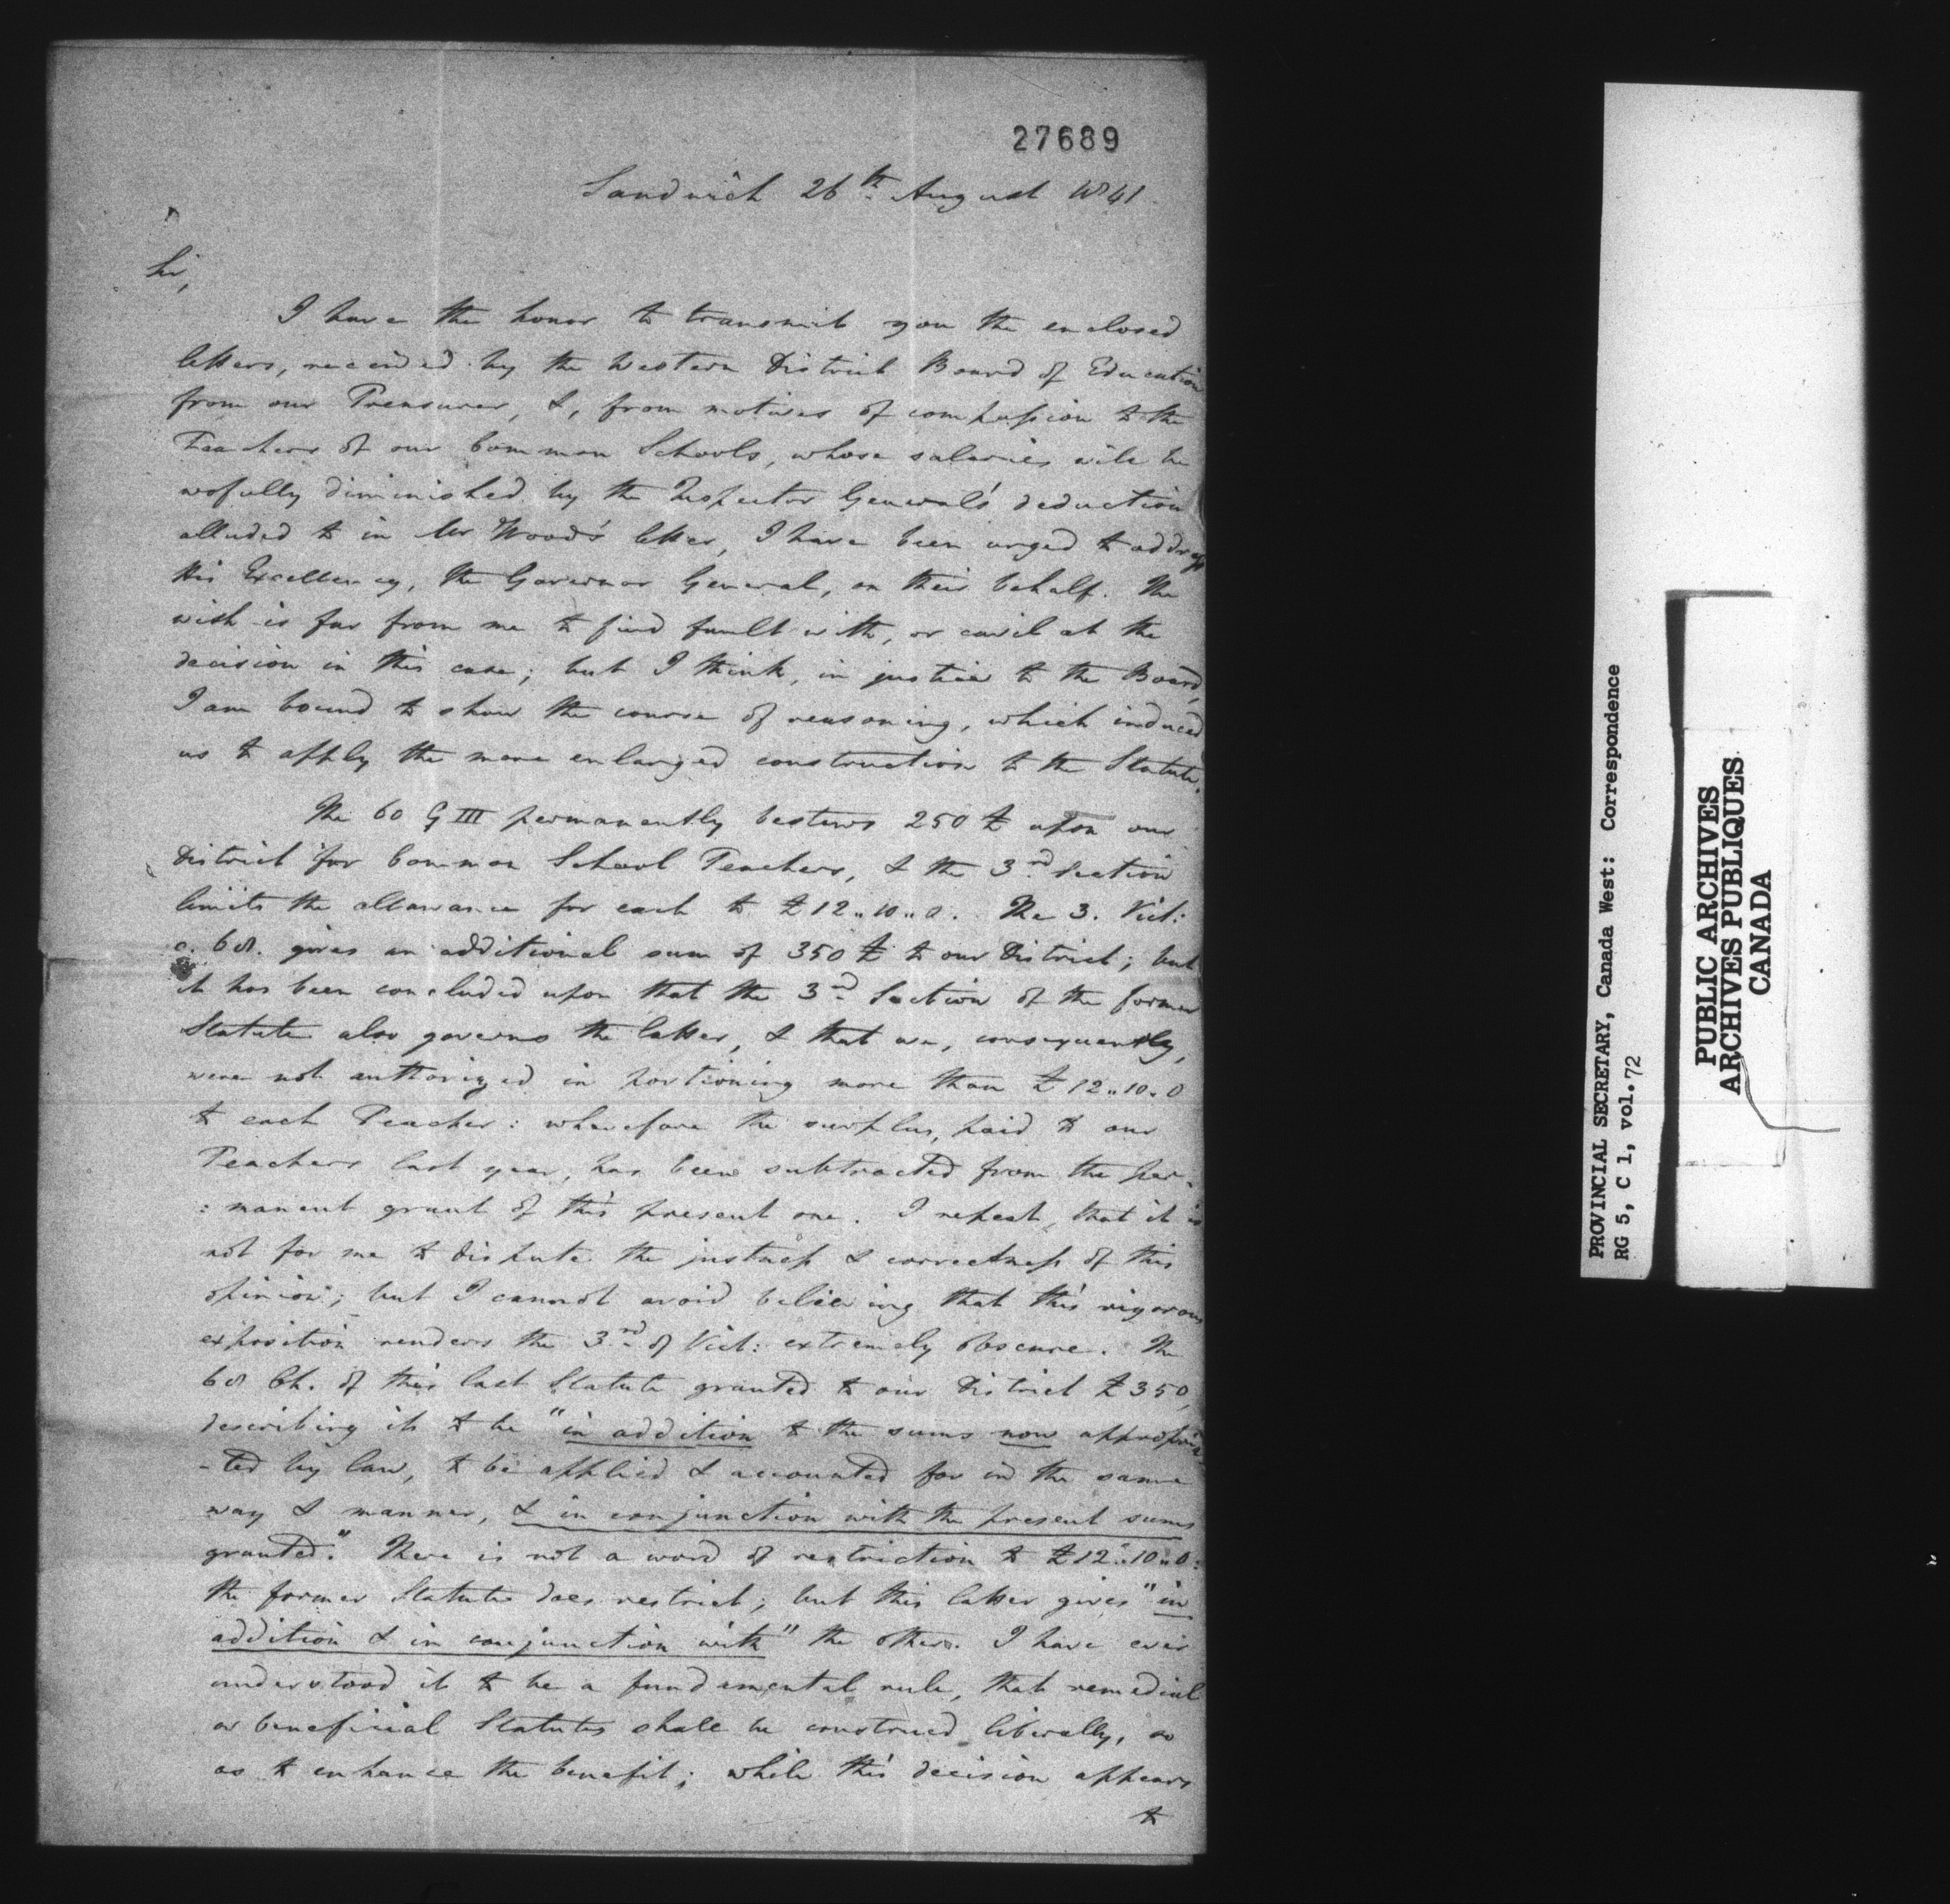 27689
Sandwich 26th August 1841
Sir,
I have the honor to transmit you the enclosed
letters, received by the Western District Board of Education
from our Treasurer, &, from motives of compassion to the
Teachers of our Common Schools, whose salaries will be
wofully diminished by the Inspector General's deduction
alluded to in Mr Wood's letter, I have been urged to address
His Excellency, the Governor General, on their behalf. The
wish is far from me to find fault with, or cavil at the
decision in this case; but I think, in justice to the Board,
I am bound to show the course of reasoning, which induced
us to apply the more enlarged construction to the Statute.
The 60 G III permanently bestows 250 £ upon our
District for Common School Teachers, & the 3rd Section
limits the allowance for each to £12..10..0. The 3. Vict:
c. 68. gives an additional sum of 350 £ to our District; but
it has been concluded upon that the 3rd Section of the former
Statute also governs the latter, & that we, consequently,
were not authorized in portioning more than £12..10..0
to each Teacher: wherefore the surplus, paid to our
Teachers last year, has been subtracted from the per-
: manent grant of this present one. I repeat, that it is
not for me to dispute the justness & correctness of this
opinion; but I cannot avoid believing that this rigorous
exposition renders the 3rd of Vict: extremely obscure. The
68 Ch. of this last Statute granted to our District £350,
describing it to be "in addition to the sums now appropria
-ted by law, to be applied & accounted for in the same
way & manner, & in conjunction with the present sums
granted." There is not a word of restriction to £12..10..0:
the former Statute does restrict; but this latter gives "in
addition & in conjunction with" the other. I have ever
understood it to be a fundamental rule, that remedial
or beneficial Statutes shall be construed liberally, so
as to enhance the benefit; while this decision appears
to
PROVINCIAL SECRETARY, Canada West: Correspondence
RG 5, C 1, vol. 72
PUBLIC ARCHIVES
ARCHIVES PUBLIQUES
CANADA